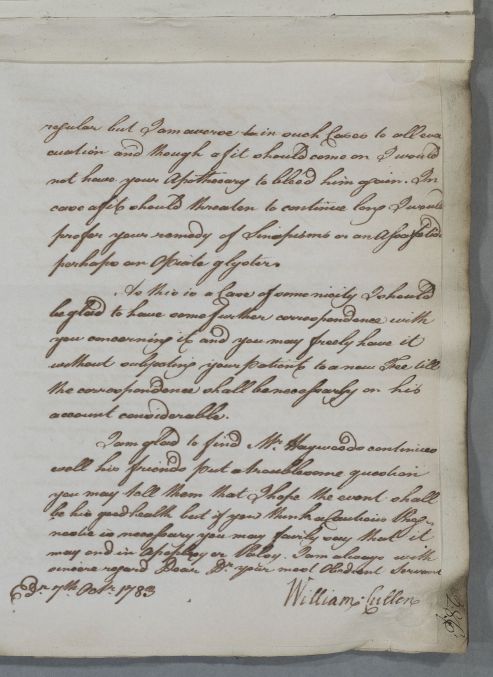 regular but I am averse to in such Cases to all eva
cuation and though a fit should come on I would
not have your Apothecary to bleed him again. In
case a fit should threaten to continue long I would
prefer your remedy of Sinapisms or an Asafoetida
perhaps an Opiate glyster.
As this is a Case of some nicity I should
be glad to have some further correspondence with
you concerning it and you may freely have it
without subjecting your patient to a new Fee till
the correspondence shall be necessarly on his
account considerable.
I am glad to find Mr. Haywoods continues
well his friends put a troublesome question
you may tell them that I hope the event shall
be his good health but if you think a Cautious Prog-
nostic is necessary you may fairly say that it
may end in Apoplexy or Palsy. I am always with
sincere regard Dear Dr. your most Obedient Servant
Edr. 7th Octr. 1783 William Cullen